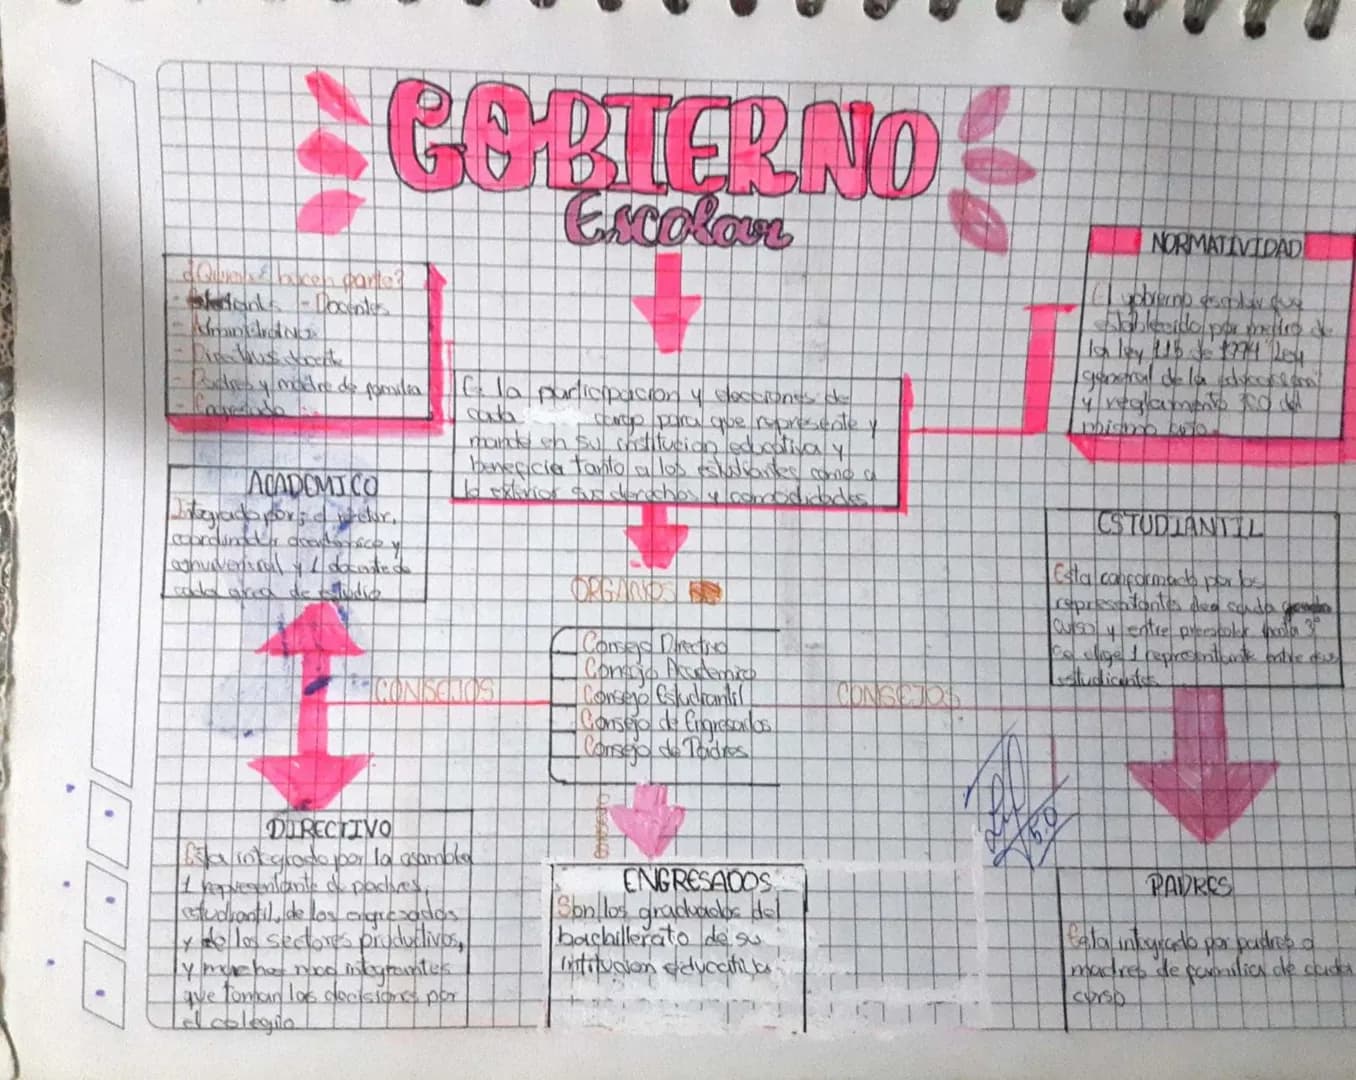 GOBIERNO
Escolar
¿Quienes hacen parte?
- Estudiants - Docentes
- Administrativo
- Directivos docente
- Padres y madre de familia
- Engresado
Es la participacion y elecciones de
cada cargo para que represente y
mande en su institucion educativa y
beneficia tanto a los estudiantes como a
lo exterior sus derechos y comodidades
NORMATIVIDAD
El gobierno escolar fue
establecido por medio de
la ley 115 de 1994 "Ley
general de la educacion"
y reglamento del
mismo
ACADEMICO
Integrado por: el rector,
coordinador academico y
convivencial y 1 docente de
cada area de estudio
ORGANOS
Consejo Directivo
Consejo Academico
Consejo Estudiantil
Consejo de Engresados
Consejo de Padres
CONSEJOS
CONSEJOS
ESTUDIANTIL
Esta conformado por los
representantes de cada
curso y entre preescolar hasta 3°
se elige 1 representante entre
estudiantes
5.0
DIRECTIVO
Esta integrado por la asamblea
1 representante de padres,
estudiantil, de los engresados
y de los sectores productivos,
y muchos mas integrantes
que toman las decisiones por
el colegio
ENGRESADOS
Son los graduados del
bachillerato de su
intitucion educativa
PADRES
Esta integrado por padres o
madres de familia de cada
curso